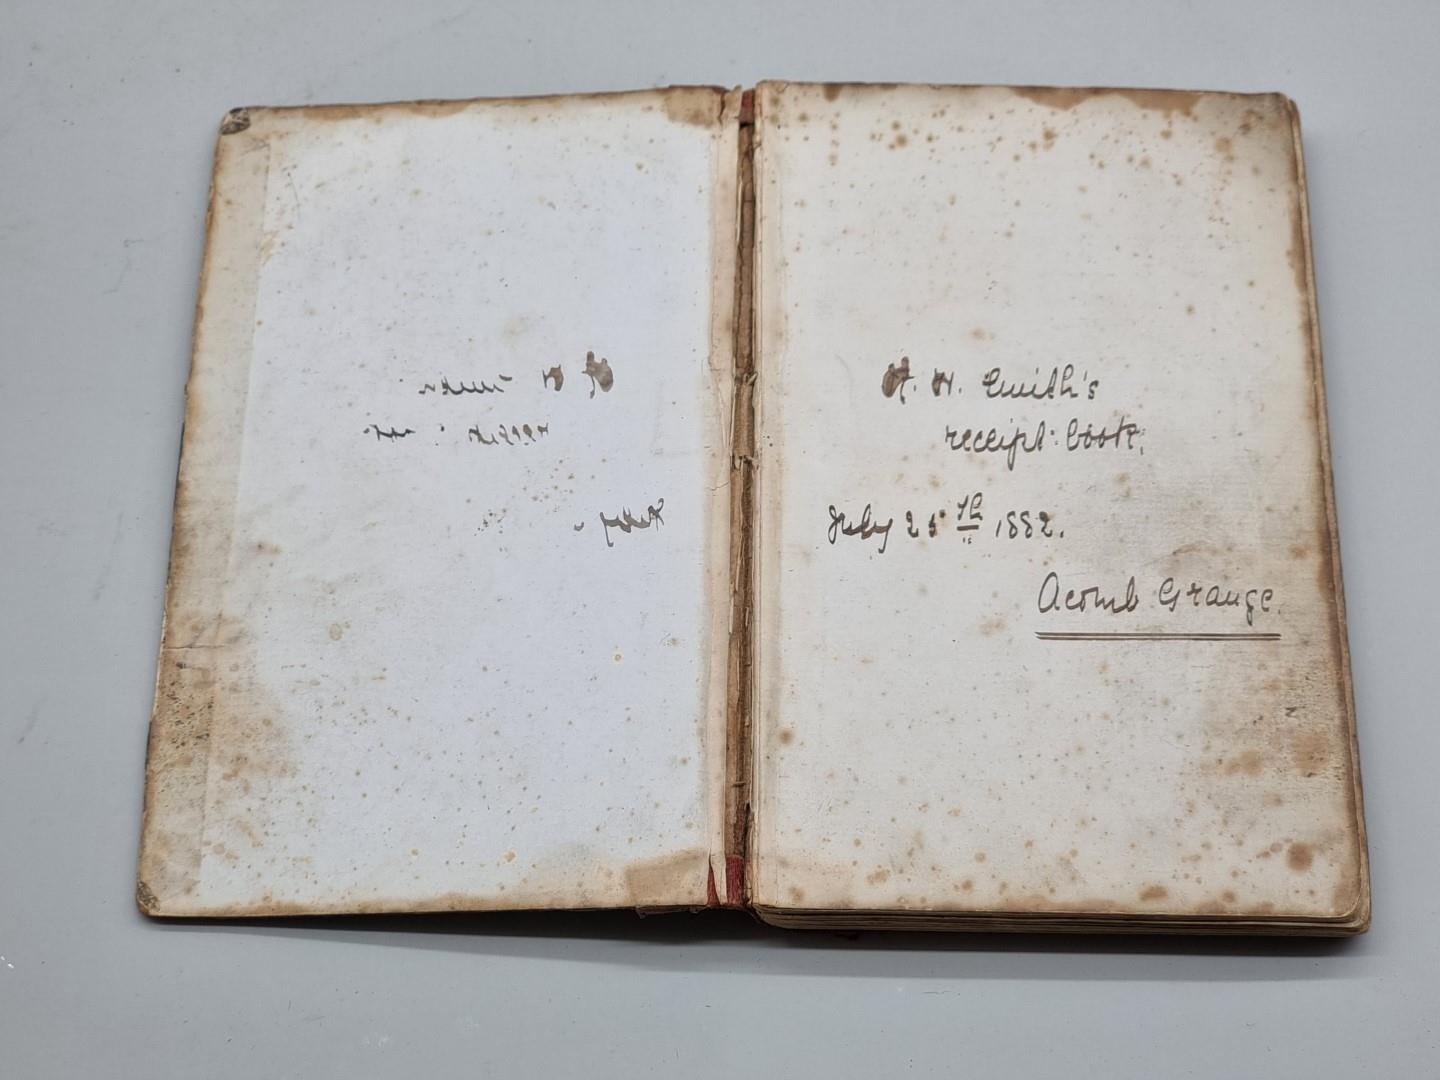 H. Smith's
receipt: book.
July 25th 1882.
Acomb Grange.